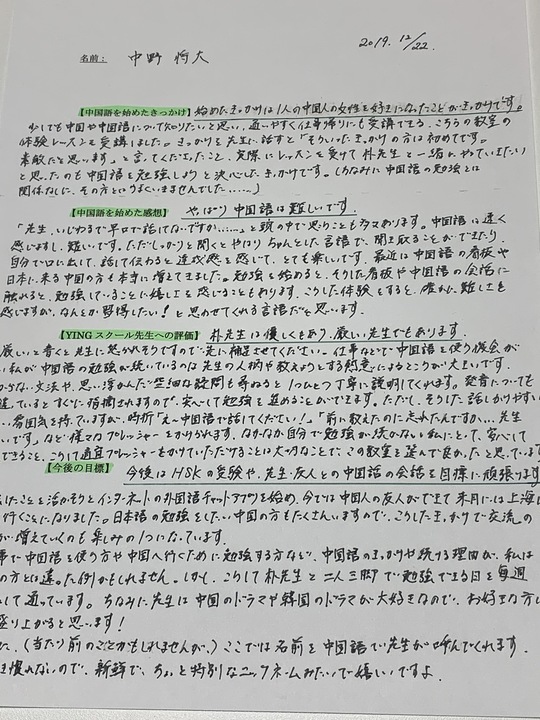 2019. 12/22.
名前: 中野 将大
【中国語を始めたきっかけ】 始めたきっかけは1人の中国人の女性を好きになったことがきっかけです。
少しでも中国や中国語について知りたいと思い、通いやすく仕事帰りにも受講できる、こちらの教室の
体験レッスンを受講しました。きっかけを先生に話すと「そういったきっかけの方は初めてです。
素敵だと思います。」と言ってくださったこと、実際にレッスンを受けて朴先生と一緒にやっていきたい
と思ったのも中国語を勉強しようと決心したきっかけです。(ちなみに中国語の勉強とは
関係なしに、その方とはうまくいきませんでした……)
【中国語を始めた感想】 やっぱり中国語は難しいです。
「先生、いじわるで早口で話してないですか……」と頭の中で思うことも多々あります。中国語は速く
感じますし、難しいです。ただしっかりと聞くとやはりちゃんとした言語で、聞き取ることができたり、
自分で口に出して、話して伝わると達成感を感じて、とても楽しいです。最近は中国語の看板や
日本に来る中国の方も本当に増えてきました。勉強を始めると、そうした看板や中国の会話に
触れると、勉強していることに嬉しさを感じることもあります。こうした体験をすると、確かに難しさを
感じますが、なんとか習得したい!と思わせてくれる言語だと思います。
【YINGスクール先生への評価】 朴先生は優しくもあり、厳しい先生でもあります。
厳しいと書くと先生に怒られそうですので先に補足させてください。仕事などで中国語を使う機会が
私が中国語の勉強が続いているのは先生の人柄や教えようとする熱意によるところが大きいです。
からない文法や、思い浮かんだ些細な疑問も尋ねると1つひとつ丁寧に説明してくれます。発音についても
違っているとすぐに指摘されますので、安心して勉強を進めることができます。ただし、そうした話しかけやすい
雰囲気を持っていますが、時折「え〜中国語で話してください!」「前に教えたのに忘れたんですか…先生
いです。」など様々なプレッシャーをかけられます。なかなか自分で勉強が続かない私にとって、安心して
できること、こうして適宜プレッシャーをかけていただけることは大切なことで、この教室を選んで良かったと思っています
【今後の目標】 今後はHSKの受験や、先生・友人との中国語の会話を目標に頑張ります
したことを活かそうとインターネットの外国語チャットアプリを始め、今では中国人の友人ができて来月には上海に
行くことになりました。日本語の勉強をしたい中国の方もたくさんいますので、こうしたきっかけで交流の
が増えていくのも楽しみの1つになっています。
事で中国語を使う方や中国へ行くために勉強する方など、中国語のきっかけや続ける理由が、私は
の方とは違った例かもしれません。しかし、こうして朴先生と二人三脚で勉強できる日を毎週
して通っています。ちなみに先生は中国のドラマや韓国のドラマが大好きなので、お好きな方は
盛り上がると思います!
た、(当たり前のことかもしれませんが、)ここでは名前を中国語で先生が呼んでくれます。
き慣れないので、新鮮で、ちょっと特別なニックネームみたいで嬉しいですよ。